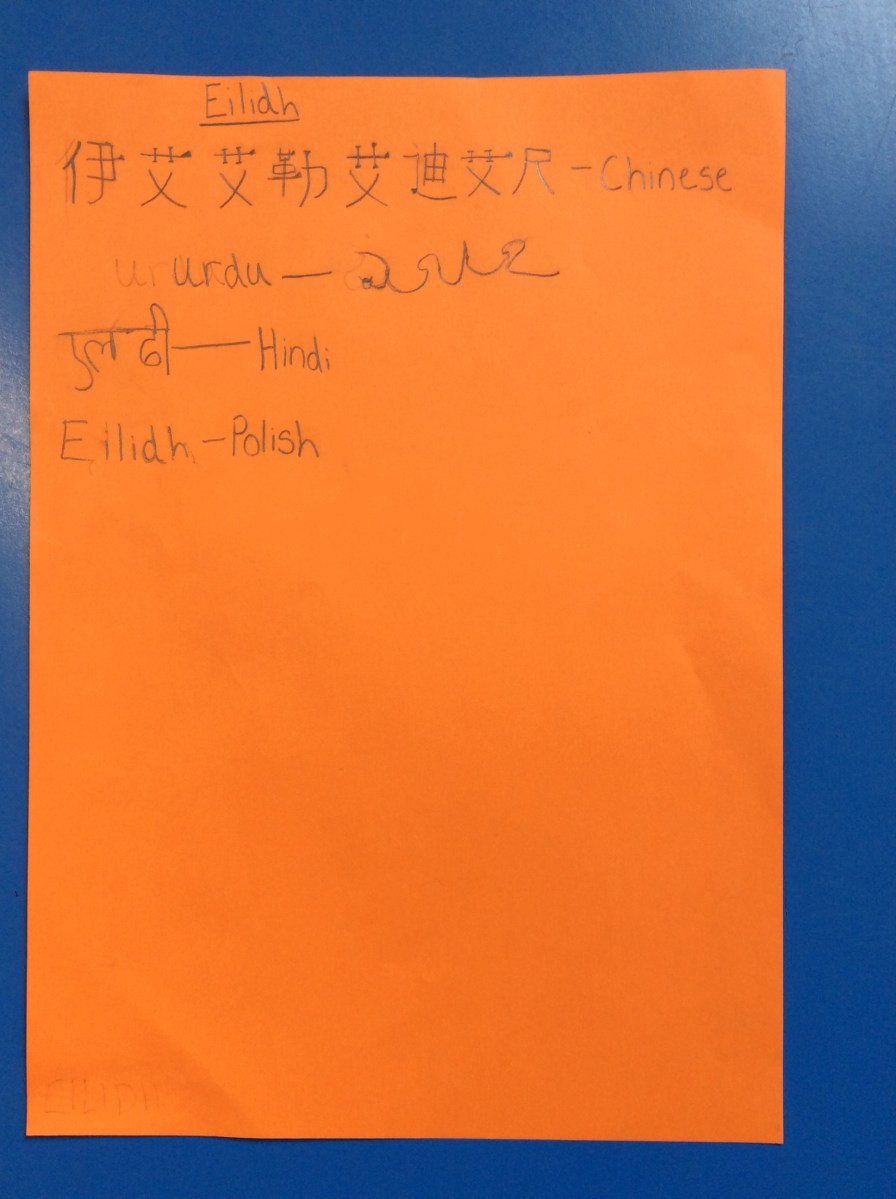 Eilidh
伊艾艾勒艾迪艾尺 - Chinese
urdu —
एल ढी — Hindi
Eilidh - Polish
EILIDH